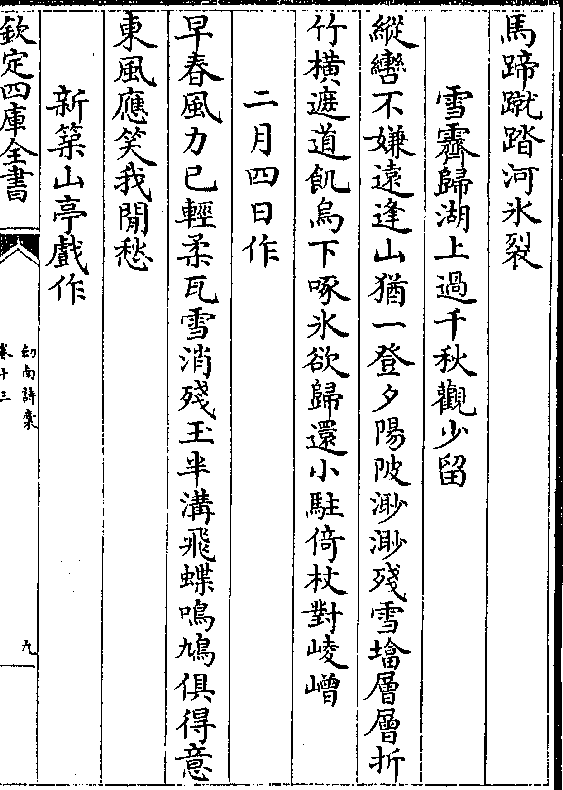 馬蹄蹴踏河氷裂
雪霽歸湖上過千秋觀少留
縱轡不嫌遠逢山猶一登夕陽陂渺渺殘雪墖層層折
竹橫遮道飢烏下啄氷欲歸還小駐倚杖對崚嶒
二月四日作
早春風力已輕柔瓦雪消殘玉半溝飛蝶鳴鳩俱得意
東風應笑我閒愁
新築山亭戲作
欽定四庫全書
劍南詩稾
卷十三
九